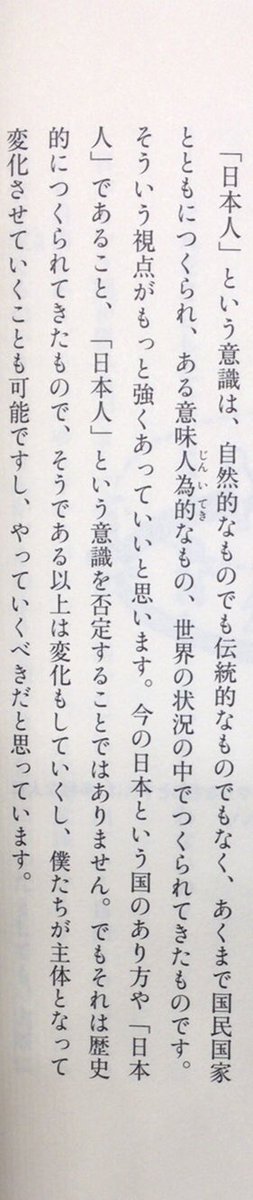 「日本人」という意識は、自然的なものでも伝統的なものでもなく、あくまで国民国家
とともにつくられ、ある意味人為的なもの、世界の状況の中でつくられてきたものです。
そういう視点がもっと強くあっていいと思います。今の日本という国のあり方や「日本
人」であること、「日本人」という意識を否定することではありません。でもそれは歴史
的につくられてきたもので、そうである以上は変化もしていくし、僕たちが主体となって
変化させていくことも可能ですし、やっていくべきだと思っています。